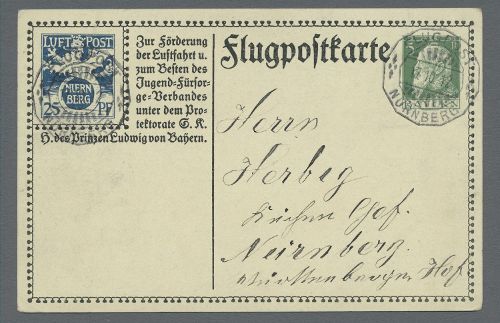 LUFT POST
NUERN
BERG
25 PF
Zur Förderung
der Luftfahrt u.
zum Besten des
Jugend-Fürsor-
ge-Verbandes
unter dem Pro-
tektorate S. K.
H. des Prinzen Ludwig von Bayern.
Flugpostkarte
FLUG
5
BAYERN
NÜRNBERG
Herrn
Herbig
Küchen Gef.
Neirnberg.
Württemberger Hof